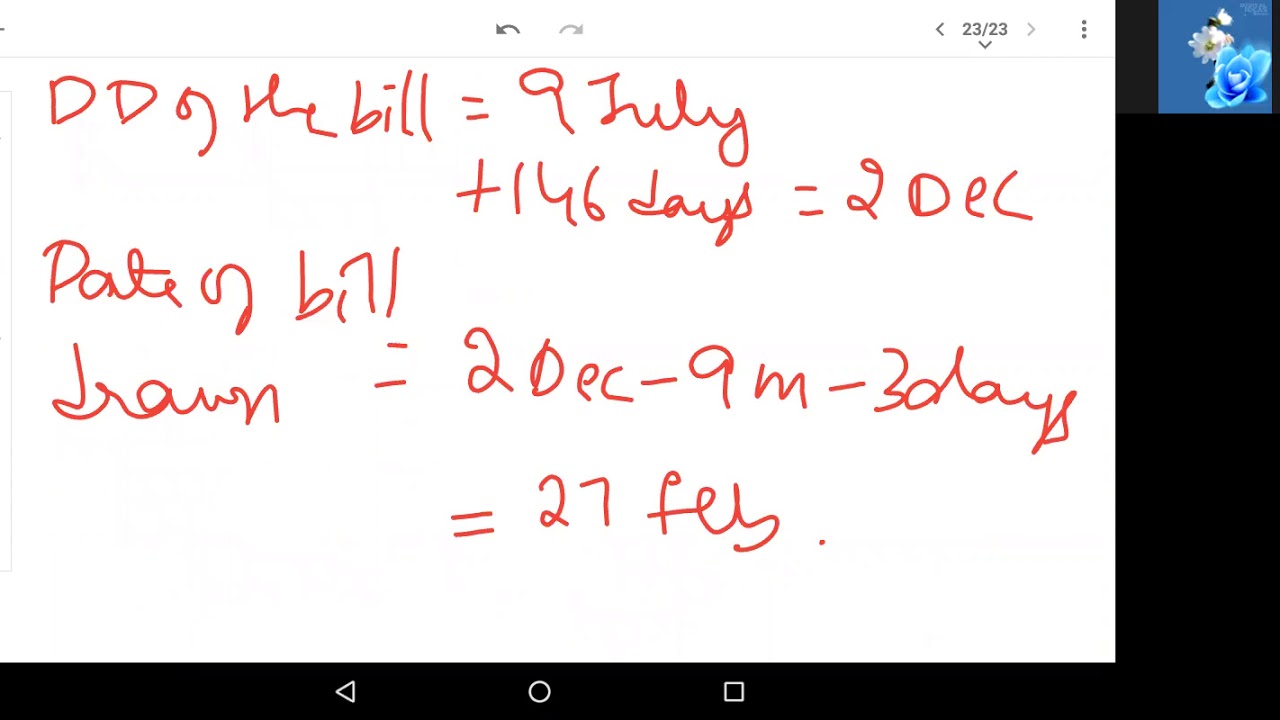 23/23
DD of the bill = 9 July
+146 days = 2 Dec
Date of bill
drawn = 2 Dec - 9 m - 3 days
= 27 feb.